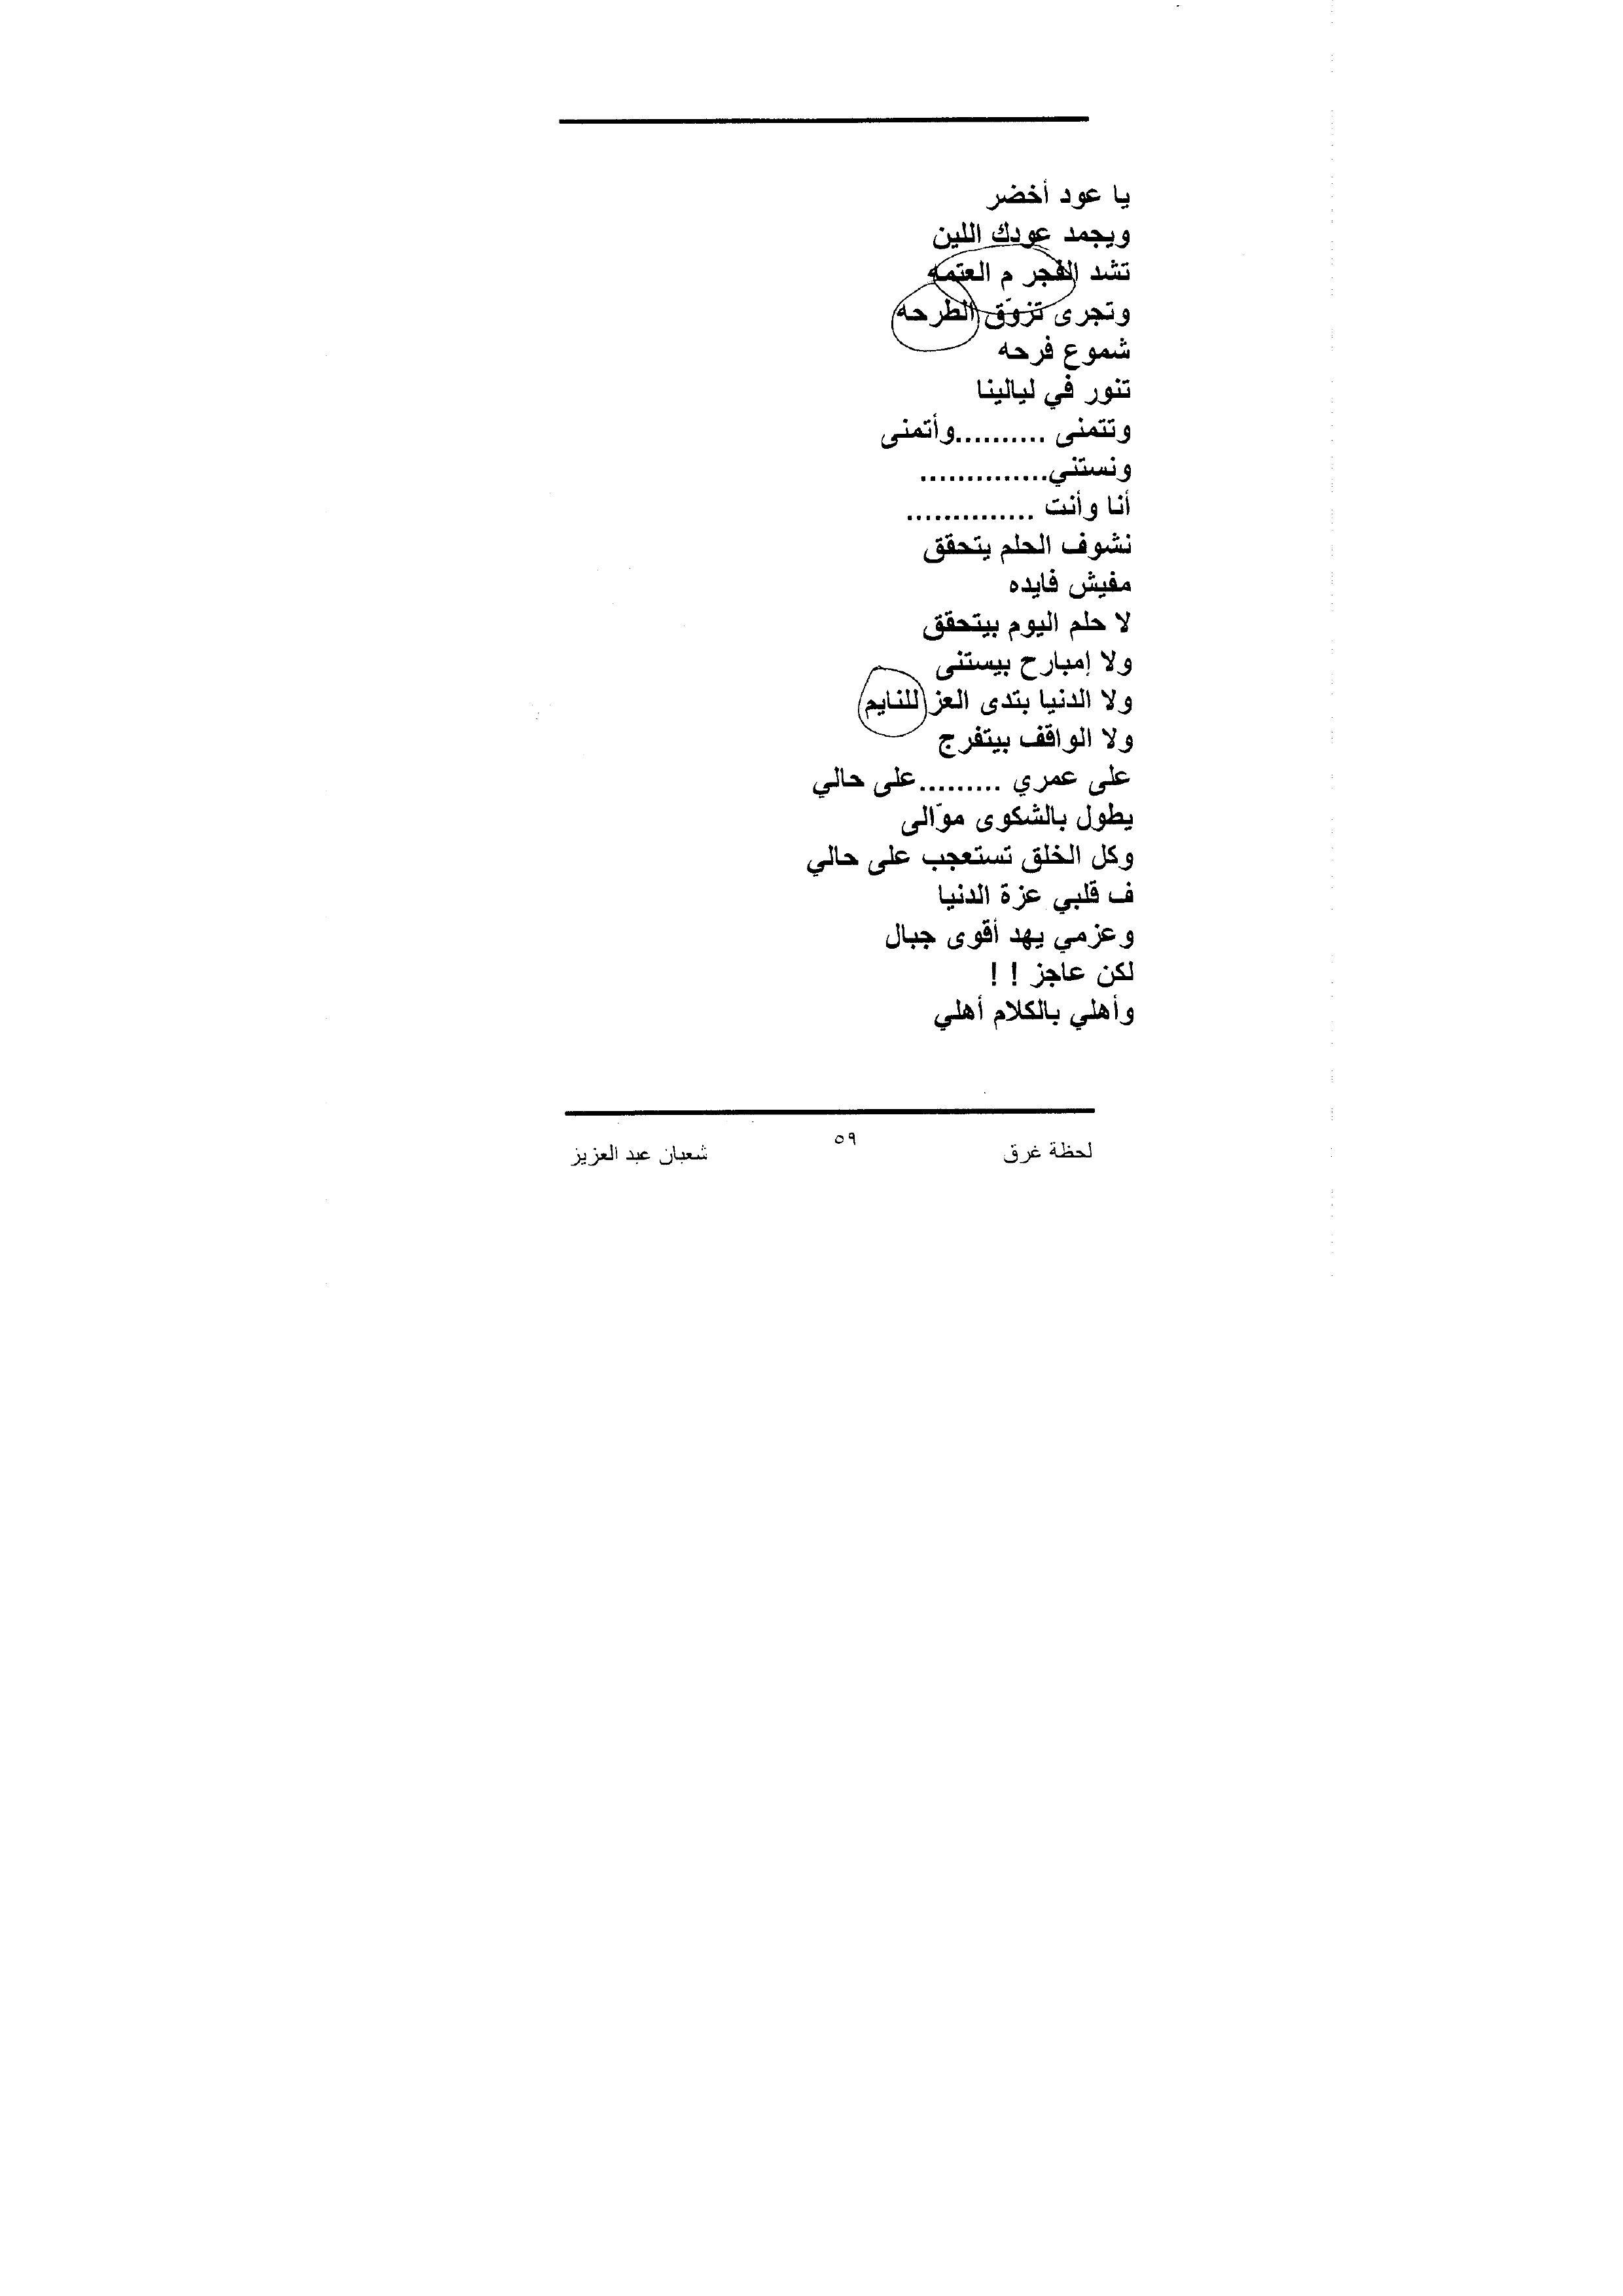 يا عود أخضر
ويجمد عودك اللين
تشد الفجر م العتمه
وتجرى تزوّق الطرحه
شموع فرحه
تنور في ليالينا
وتتمنى ..........وأتمنى
ونستني..............
أنا وأنت ..............
نشوف الحلم يتحقق
مفيش فايده
لا حلم اليوم بيتحقق
ولا إمبارح بيستنى
ولا الدنيا بتدى العز للنايم
ولا الواقف بيتفرج
على عمري .........على حالي
يطول بالشكوى موّالى
وكل الخلق تستعجب على حالي
ف قلبي عزة الدنيا
وعزمي يهد أقوى جبال
لكن عاجز ! !
وأهلي بالكلام أهلي
٥٩
لحظة غرق شعبان عبد العزيز